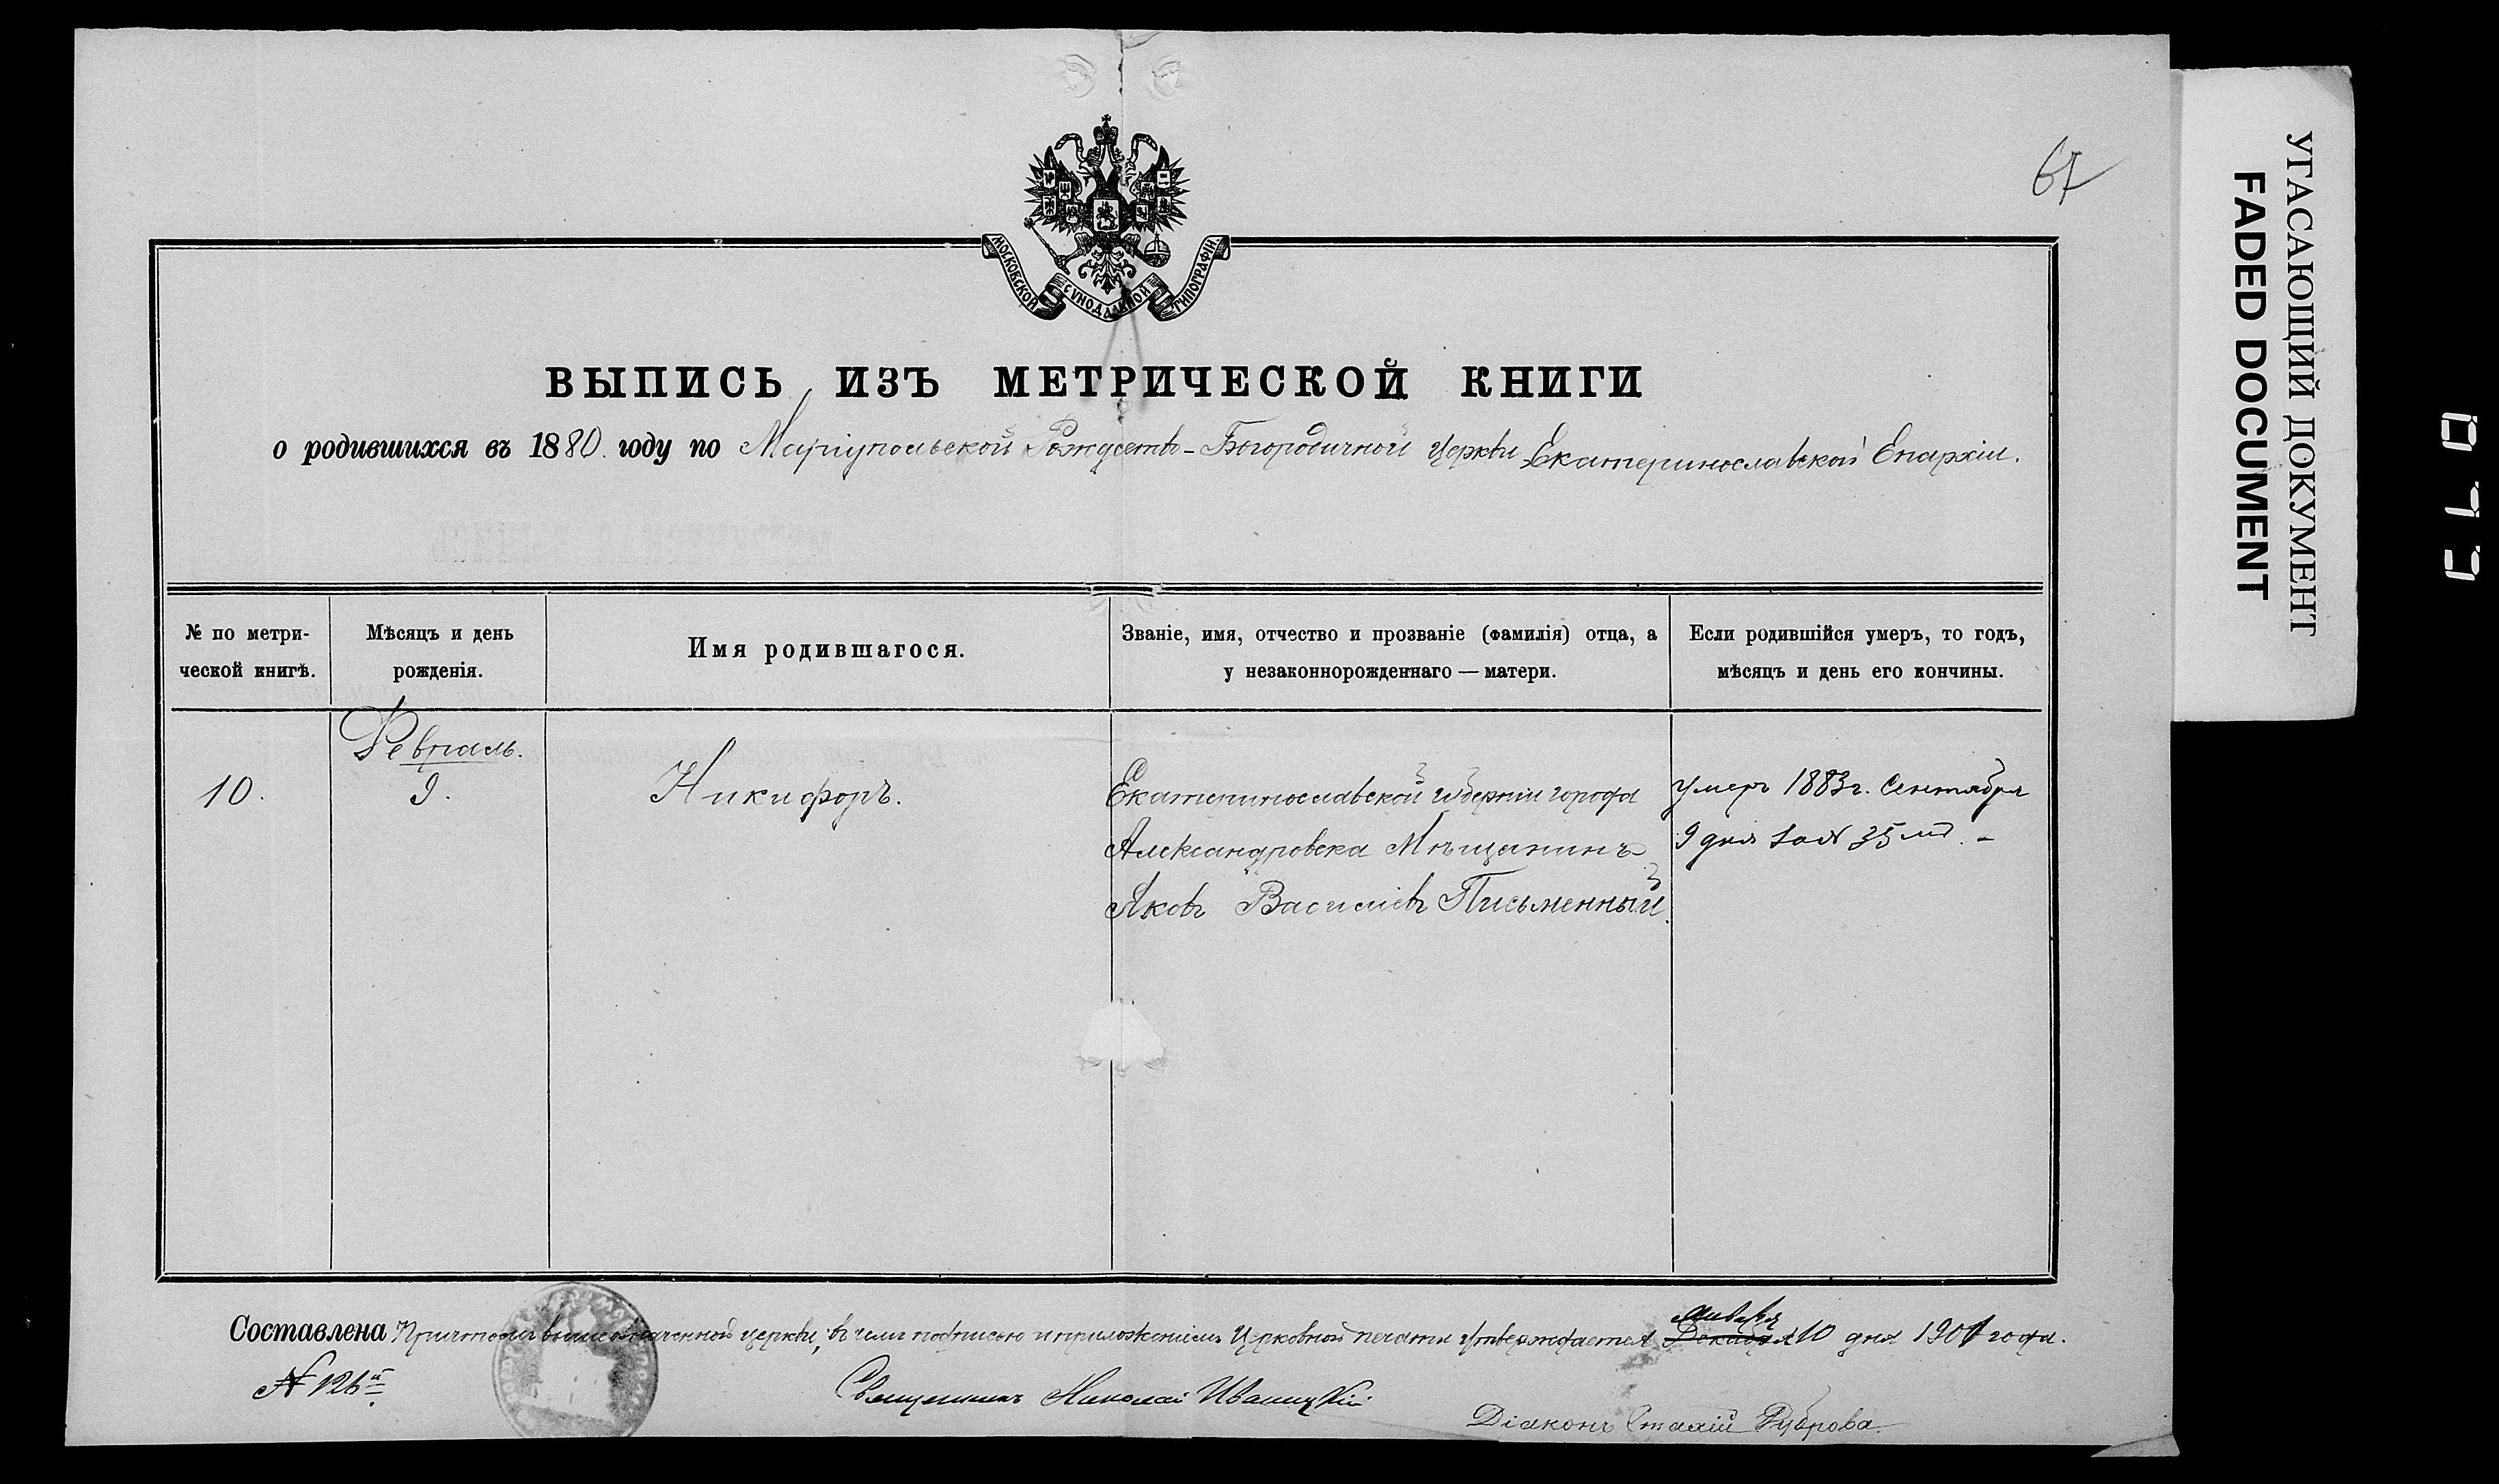 67
МОСКОВСКОЙ СѴНОДАЛЬНОЙ ТИПОГРАФІИ.
ВЫПИСЬ ИЗЪ МЕТРИЧЕСКОЙ КНИГИ
о родившихся въ 1880. году по Маріупольской Рождество-Богородичной Церкви Екатеринославской Епархіи.
№ по метри-
ческой книгѣ.
Мѣсяцъ и день
рожденія.
Имя родившагося.
Званіе, имя, отчество и прозваніе (фамилія) отца, а
у незаконнорожденнаго — матери.
Если родившійся умеръ, то годъ,
мѣсяцъ и день его кончины.
10.
Февраль.
9.
Никифоръ.
Екатеринославской губерніи города
Александровска Мѣщанинъ
Яковъ Василіевъ Письменный.
умеръ 1883г. Сентября
9 дня 35
Составлена Причтомъ вышеозначенной церкви, въ чемъ подписью и приложеніемъ Церковной печати утверждается Января Декабря 10 дня 1901 года.
№ 126й
Священникъ Николай Иваницкій
Діаконъ Руброва.
УГАСАЮЩИЙ ДОКУМЕНТ
FADED DOCUMENT